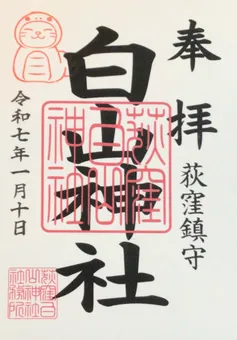 奉拝
荻窪鎮守
白山神社
荻窪
白山
神社
令和七年一月十日
荻窪白
山神社
社務所